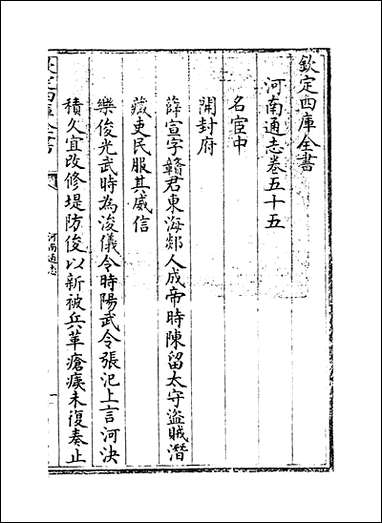 欽定四庫全書
河南通志卷五十五
名宦中
開封府
薛宣字贛君東海郯人成帝時陳留太守盜賊潛
藏吏民服其威信
樂俊光武時為浚儀令時陽武令張汜上言河決
積久宜改修堤防俊以新被兵革瘡痍未復奏止
欽定四庫全書
河南通志
一